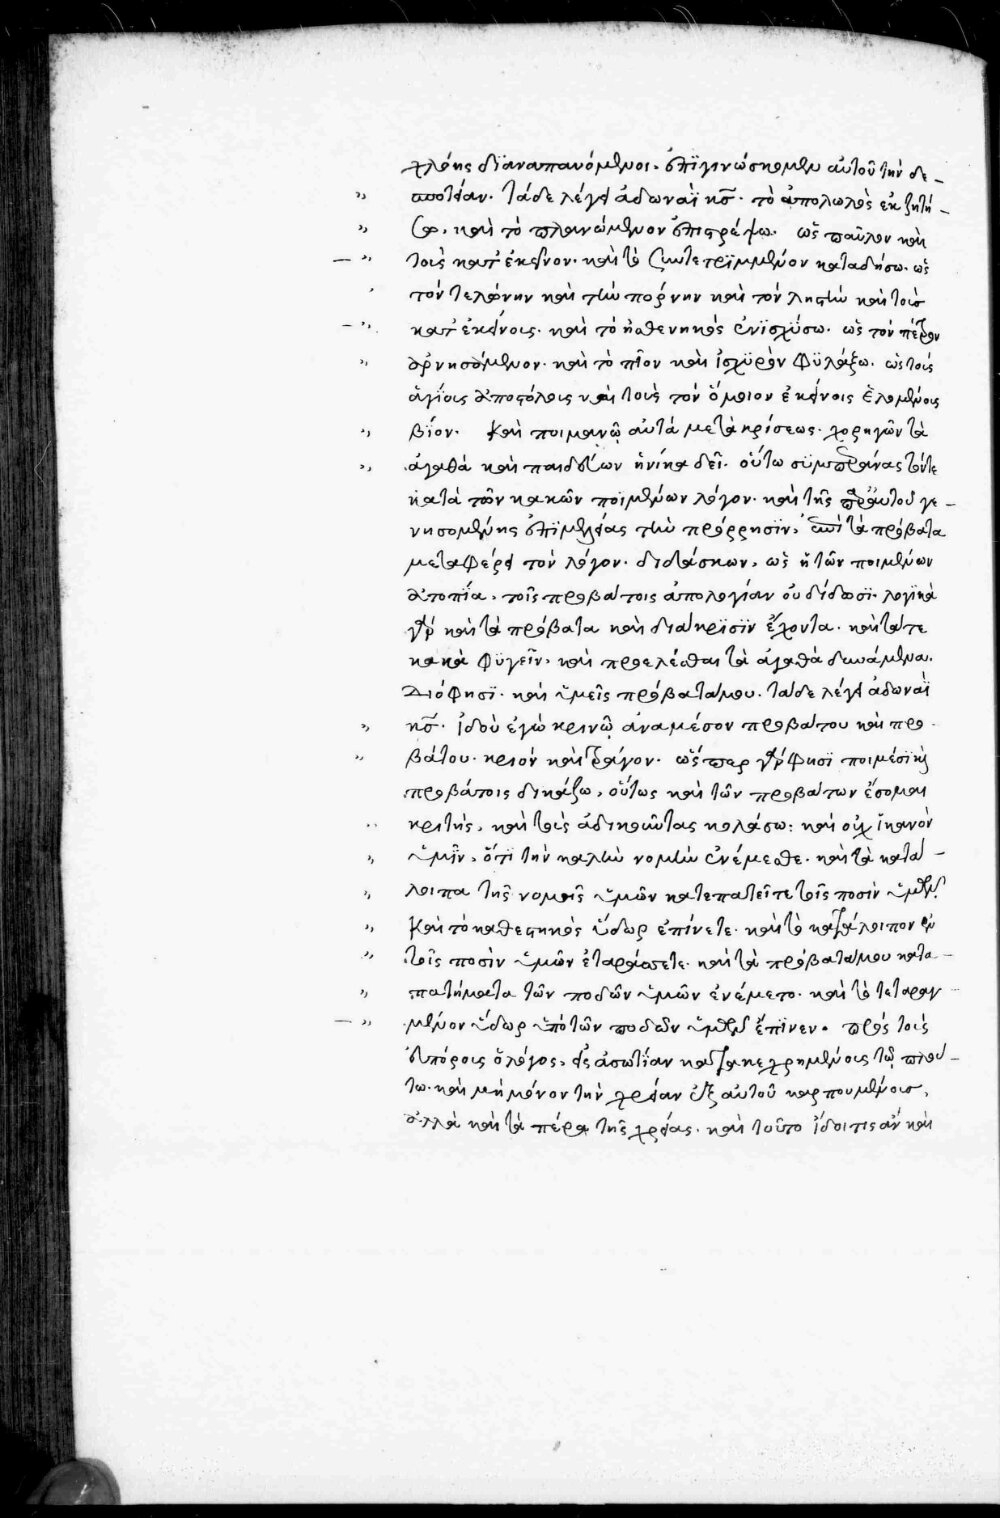 χλόης διαναπαυόμενοι. ἐπιγινώσκομεν αὐτοῦ τὴν δε-
σποτείαν. τάδε λέγει ἀδωναῒ κς. τὸ ἀπολωλὸς ἐκζητή-
σω. καὶ τὸ πλανώμενον ἐπιστρέψω. ὡς παῦλον καὶ
τοὺς κατ' ἐκεῖνον. καὶ τὸ συντετριμμένον καταδήσω. ὡς
τὸν τελώνην καὶ τὴν πόρνην καὶ τὸν ληστὴν καὶ τοὺς
κατ' ἐκείνοις. καὶ τὸ ἠσθενηκὸς ἐνϊσχύσω. ὡς τὸν πέτρον
ἀρνησάμενον. καὶ τὸ πῖον καὶ ἰσχϋρὸν φϋλάξω. ὡς τοὺς
ἁγίους ἀποστόλους καὶ τοὺς τὸν ὅμοιον ἐκείνοις ἑλομένους
βίον. Καὶ ποιμανῶ αὐτὰ μετὰ κρίσεως. χορηγῶν τὰ
ἀγαθὰ καὶ παιδεύων ἡνίκα δεῖ. οὕτω συμπεράνας τόν τε
κατὰ τῶν κακῶν ποϊμένων λόγον. καὶ τῆς παρ' αὐτοῦ γε-
νησομένης ἐπιμελείας τὴν πρόρρησϊν, ἐπὶ τὰ πρόβατα
μεταφέρει τὸν λόγον. διδάσκων, ὡς ἡ τῶν ποιμένων
ἀτοπΐα, τοῖς προβάτοις ἀπολογίαν οὐ δίδωσϊ. λογϊκὰ
γὰρ καὶ τὰ πρόβατα καὶ διάκρϊσϊν ἔχοντα. καὶ τά τε
κακὰ φϋγεῖν, καὶ προελέσθαι τὰ ἀγαθὰ δυνάμενα.
Διό φησϊ. καὶ ὑμεῖς πρόβατά μου. τάδε λέγει ἀδωναῒ
κς. ἰδοὺ ἐγὼ κρινῶ ἀναμέσον προβάτου καὶ προ-
βάτου. κριὸν καὶ τράγον. ὥσπερ γάρ φησϊ ποιμέσϊ καὶ
προβάτοις δικάζω, οὕτως καὶ τῶν προβάτων ἔσομαι
κριτὴς, καὶ τοὺς ἀδικοῦντας κολάσω: καὶ οὐχ ἱκανὸν
ὑμῖν, ὅτϊ τὴν καλὴν νομὴν ἐνέμεσθε. καὶ τὰ κατά-
λοιπα τῆς νομῆς ὑμῶν κατεπατεῖτε τοῖς ποσὶν ὑμῶν.
Καὶ τὸ καθεστηκὸς ὕδωρ ἐπίνετε. καὶ τὸ κατάλοιπον ἐν
τοῖς ποσὶν ὑμῶν ἐταράσσετε. καὶ τὰ πρόβατά μου κατα-
πατήματα τῶν ποδῶν ὑμῶν ἐνέμετο. καὶ τὸ τεταραγ-
μένον ὕδωρ ὑπὸ τῶν ποδῶν ὑμῶν ἔπϊνεν. πρὸς τοὺς
εὐπόρους ὁ λόγος, εἰς ἀσωτίαν κατακεχρημένους τῷ πλού-
τω. καὶ μὴ μόνον τὴν χρείαν ἐξ αὐτοῦ καρπουμένοις,
ἀλλὰ καὶ τὰ πέρα τῆς χρείας. καὶ τοῦτο ἴδοι τις ἂν καὶ